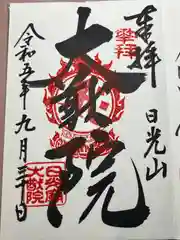 奉拝
日光山
大猷院
令和五年九月三十日
日光山
大猷院